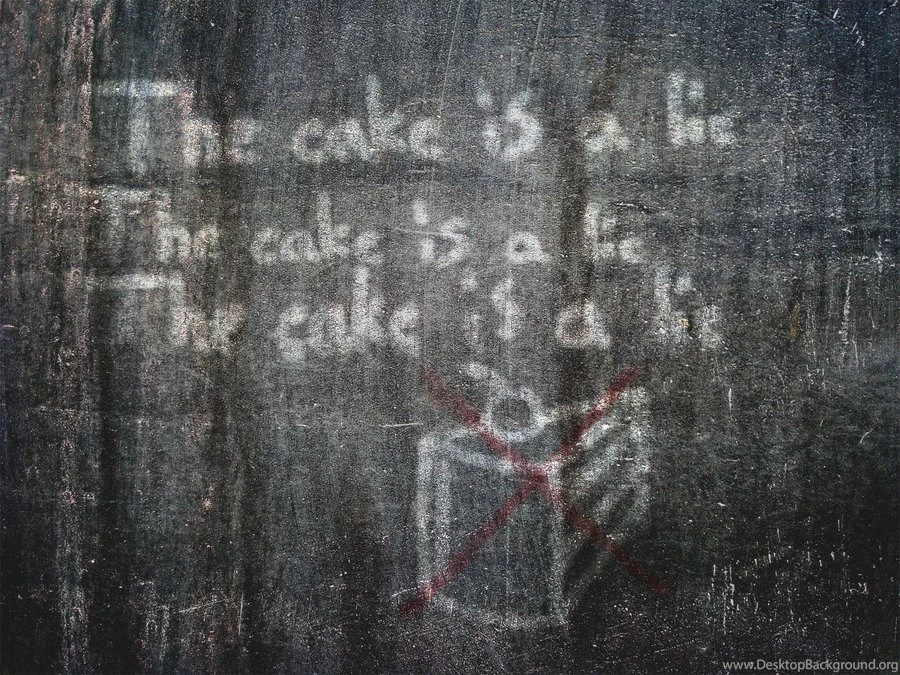 The cake is a lie
The cake is a lie
The cake is a lie
www.DesktopBackground.org